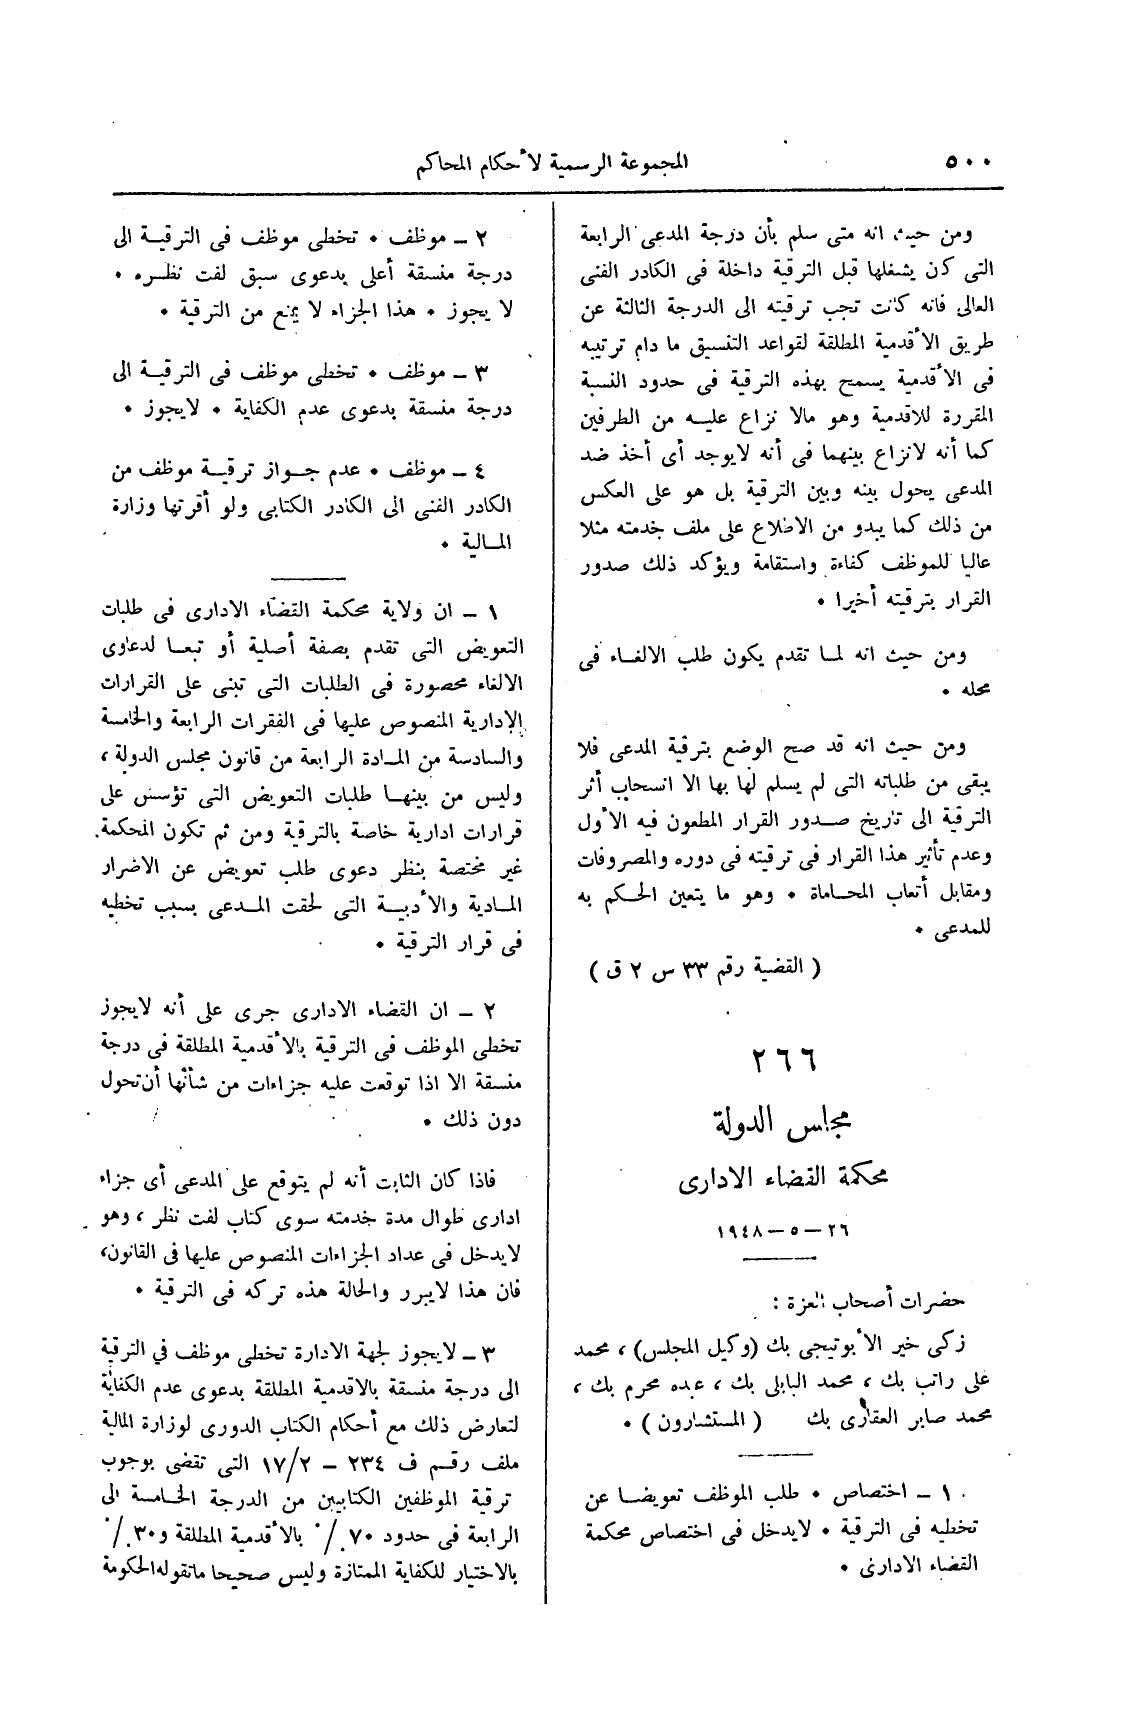 ٥٠٠
المجموعة الرسمية لأحكام المحاكم
ومن حيث انه متى سلم بأن درجة المدعى الرابعة
التى كان يشغلها قبل الترقية داخلة فى الكادر الفنى
العالى فانه كانت تجب ترقيته الى الدرجة الثالثة عن
طريق الأقدمية المطلقة لقواعد التنسيق ما دام ترتيبه
فى الأقدمية يسمح بهذه الترقية فى حدود النسبة
المقررة للاقدمية وهو مالا نزاع عليه من الطرفين
كما أنه لانزاع بينهما فى أنه لايوجد أى أخذ ضد
المدعى يحول بينه وبين الترقية بل هو على العكس
من ذلك كما يبدو من الاطلاع على ملف خدمته مثلا
عاليا للموظف كفاءة واستقامة ويؤكد ذلك صدور
القرار بترقيته أخيرا •
ومن حيث انه لما تقدم يكون طلب الالغاء فى
محله •
ومن حيث انه قد صح الوضع بترقية المدعى فلا
يبقى من طلباته التى لم يسلم لها بها الا انسحاب أثر
الترقية الى تاريخ صدور القرار المطعون فيه الأول
وعدم تأثير هذا القرار فى ترقيته فى دوره والمصروفات
ومقابل أتعاب المحاماة • وهو ما يتعين الحكم به
للمدعى •
( القضية رقم ٣٣ س ٢ ق )
٢٦٦
مجلس الدولة
محكمة القضاء الادارى
٢٦ – ٥ – ١٩٤٨
حضرات أصحاب العزة :
زكى خير الأبوتيجى بك (وكيل المجلس) ، محمد
على راتب بك ، محمد البابلى بك ، عبده محرم بك ،
محمد صابر العقارى بك ( المستشارون ) •
١ – اختصاص • طلب الموظف تعويضا عن
تخطيه فى الترقية • لايدخل فى اختصاص محكمة
القضاء الادارى •
٢ – موظف • تخطى موظف فى الترقية الى
درجة منسقة أعلى بدعوى سبق لفت نظره •
لا يجوز • هذا الجزاء لا يمنع من الترقية •
٣ – موظف • تخطى موظف فى الترقية الى
درجة منسقة بدعوى عدم الكفاية • لايجوز •
٤ – موظف • عدم جواز ترقية موظف من
الكادر الفنى الى الكادر الكتابى ولو أقرتها وزارة
المالية •
١ – ان ولاية محكمة القضاء الادارى فى طلبات
التعويض التى تقدم بصفة أصلية أو تبعا لدعاوى
الالغاء محصورة فى الطلبات التى تبنى على القرارات
الإدارية المنصوص عليها فى الفقرات الرابعة والخامسة
والسادسة من المادة الرابعة من قانون مجلس الدولة ،
وليس من بينها طلبات التعويض التى تؤسس على
قرارات ادارية خاصة بالترقية ومن ثم تكون المحكمة
غير مختصة بنظر دعوى طلب تعويض عن الاضرار
المادية والأدبية التى لحقت المدعى بسبب تخطيه
فى قرار الترقية •
٢ – ان القضاء الادارى جرى على أنه لايجوز
تخطى الموظف فى الترقية بالأقدمية المطلقة فى درجة
منسقة الا اذا توقعت عليه جزاءات من شأنها أن تحول
دون ذلك •
فاذا كان الثابت أنه لم يتوقع على المدعى أى جزاء
ادارى طوال مدة خدمته سوى كتاب لفت نظر ، وهو
لايدخل فى عداد الجزاءات المنصوص عليها فى القانون،
فان هذا لايبرر والحالة هذه تركه فى الترقية •
٣ – لايجوز لجهة الادارة تخطى موظف في الترقية
الى درجة منسقة بالاقدمية المطلقة بدعوى عدم الكفاية
لتعارض ذلك مع أحكام الكتاب الدورى لوزارة المالية
ملف رقم ف ٢٣٤ – ١٧/٢ التى تقضى بوجوب
ترقية الموظفين الكتابيين من الدرجة الخامسة الى
الرابعة فى حدود ٧٠٪ بالأقدمية المطلقة و٣٠٪
بالاختيار للكفاية الممتازة وليس صحيحا ماتقوله الحكومة